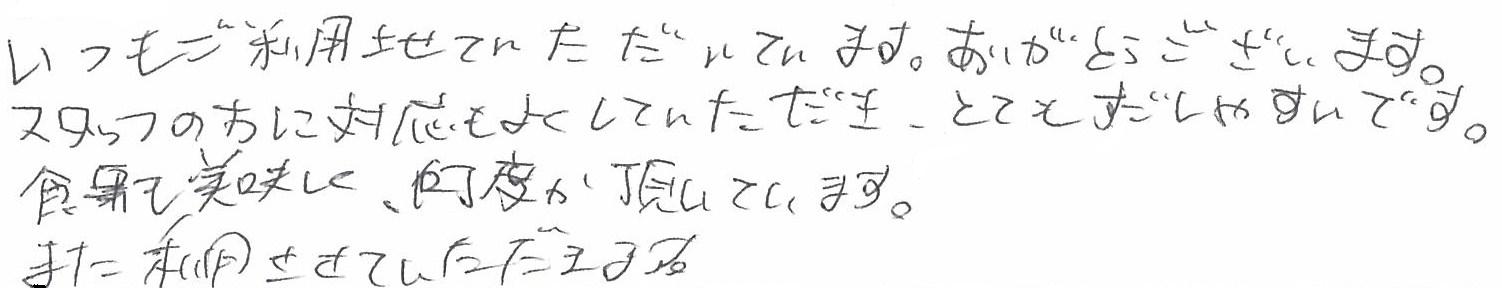 いつもご利用させていただいています。ありがとうございます。
スタッフの方に対応もよくしていただき、とてもすごしやすいです。
食事も美味しく、何度か頂いています。
また利用させていただきます。